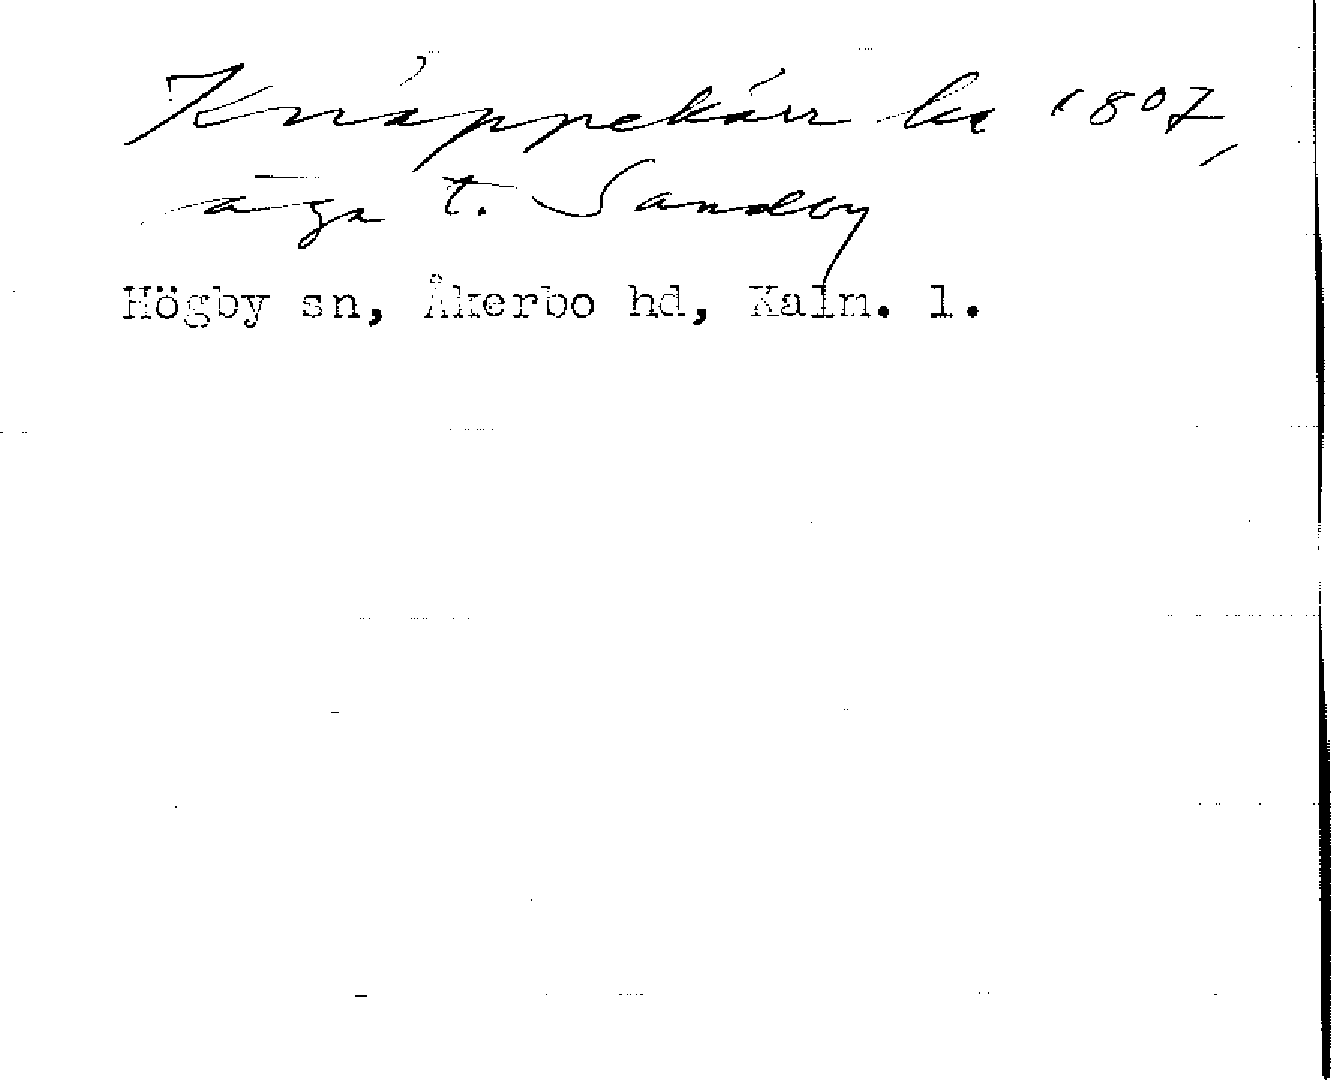 Knäppekärr ka 1807,
äga t. Sandby
Högby sn, Åkerbo hd, Kalm. l.